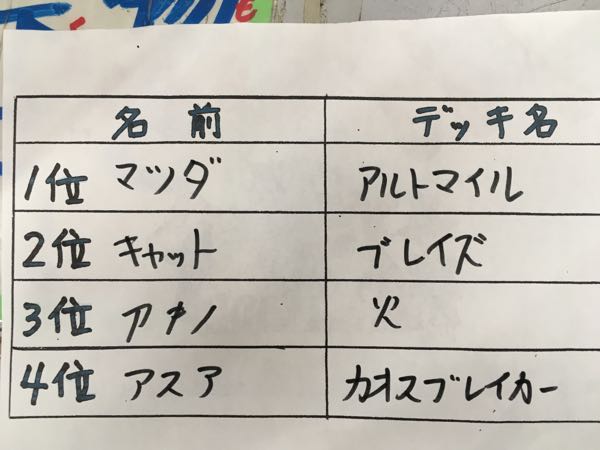 名前 デッキ名
1位 マツダ アルトマイル
2位 キャット ブレイズ
3位 アキノ 火
4位 アスア カオスブレイカー